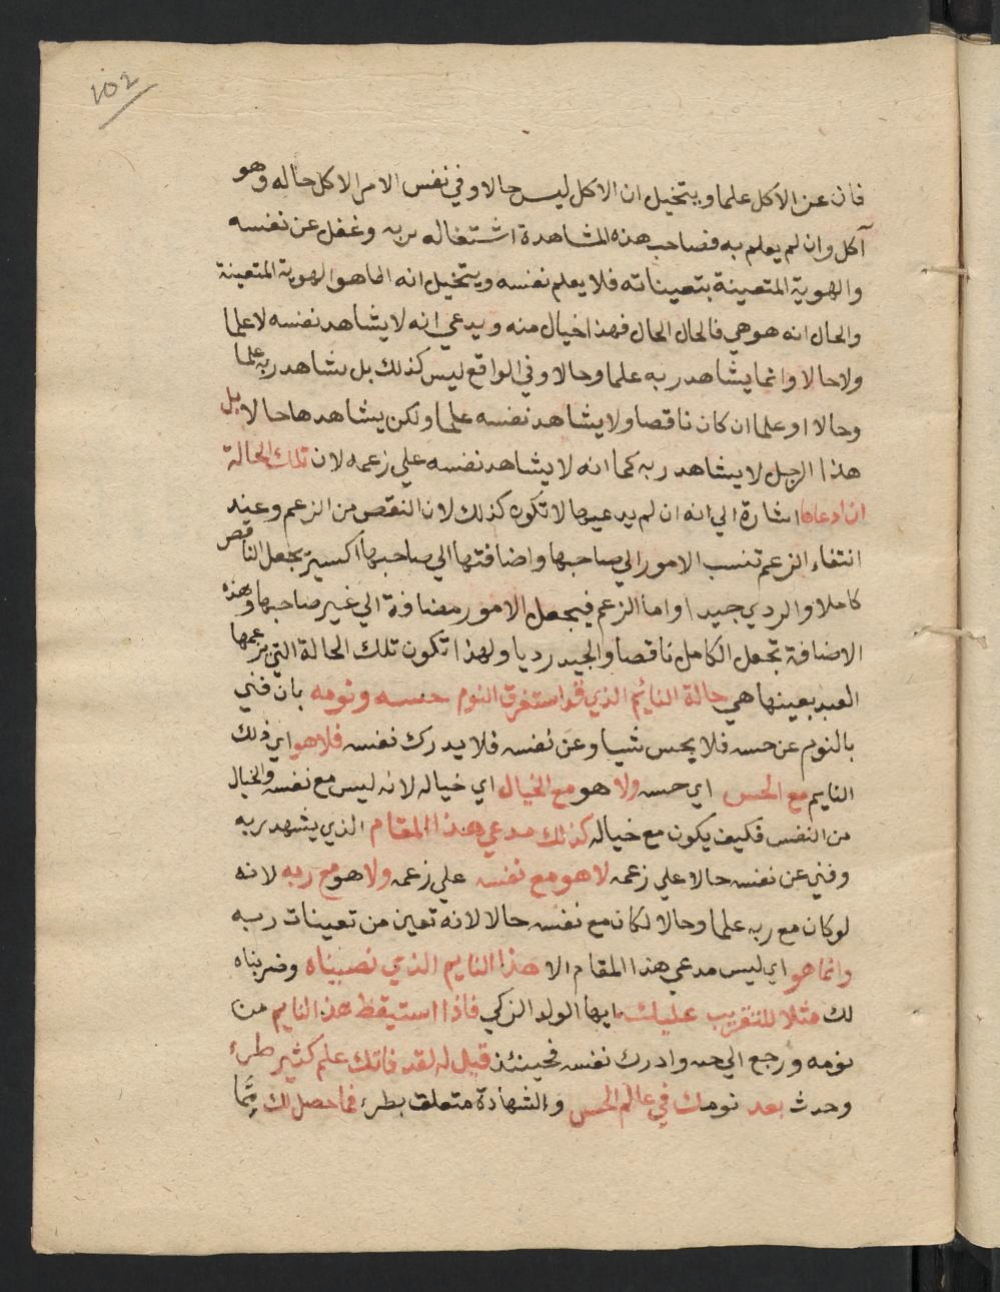 102
فان عن الاكل علما ويتخيل ان الاكل ليس حالا وفي نفس الامر الاكل حاله وهو
آكل وان لم يعلم به فصاحب هذه المشاهدة اشتغاله بربه وغفل عن نفسه
والهوية المتعينة بتعيناته فلا يعلم نفسه ويتخيل انه انما هو الهوية المتعينة
والحال انه هو هي فالحال الحال فهذا خيال منه ويدعي انه لا يشاهد نفسه لا علما
ولا حالا وانما يشاهد ربه علما وحالا وفي الواقع ليس كذلك بل يشاهد ربه علما
وحالا او علما ان كان ناقصا ولا يشاهد نفسه علما ولكن يشاهدها حالا بل
هذا الرجل لا يشاهد ربه كما انه لا يشاهد نفسه علي زعمه لان تلك الحالة
ان ادعاها اشارة الي انه ان لم يدعيها لا تكون كذلك لان النقص من الزعم وعند
انتفاء الزعم تنسب الامور الي صاحبها واضافتها الي صاحبها اكسير يجعل الناقص
كاملا والردي جيدا واما الزعم فيجعل الامور مضافة الي غير صاحبها وهذه
الاضافة تجعل الكامل ناقصا والجيد رديا ولهذا تكون تلك الحالة التي يزعمها
العبد بعينها هي حالة النايم الذي قد استغرق النوم حسه ونومه بان فني
بالنوم عن حسه فلا يحس شيا وعن نفسه فلا يدرك نفسه فلا هو اي ذلك
النايم مع الحس اي حسه ولا هو مع الخيال اي خياله لانه ليس مع نفسه والخيال
من النفس فكيف يكون مع خياله كذلك مدعي هذا المقام الذي يشهد ربه
وفني عن نفسه حالا علي زعمه لا هو مع نفسه علي زعمه ولا هو مع ربه لانه
لو كان مع ربه علما وحالا لكان مع نفسه حالا لانه تعين من تعينات ربه
وانما هو اي ليس مدعي هذا المقام الا هذا النايم الذي نصبناه وضربناه
لك مثلا للتقريب عليك ايها الولد الزكي فاذا استيقظ هذا النايم من
نومه ورجع الي حسه وادرك نفسه فحينئذ قيل له لقد فاتك علم كثير طرء
وحدث بعد نومك في عالم الحس والشهادة متعلق بطرء فما حصل لك مما